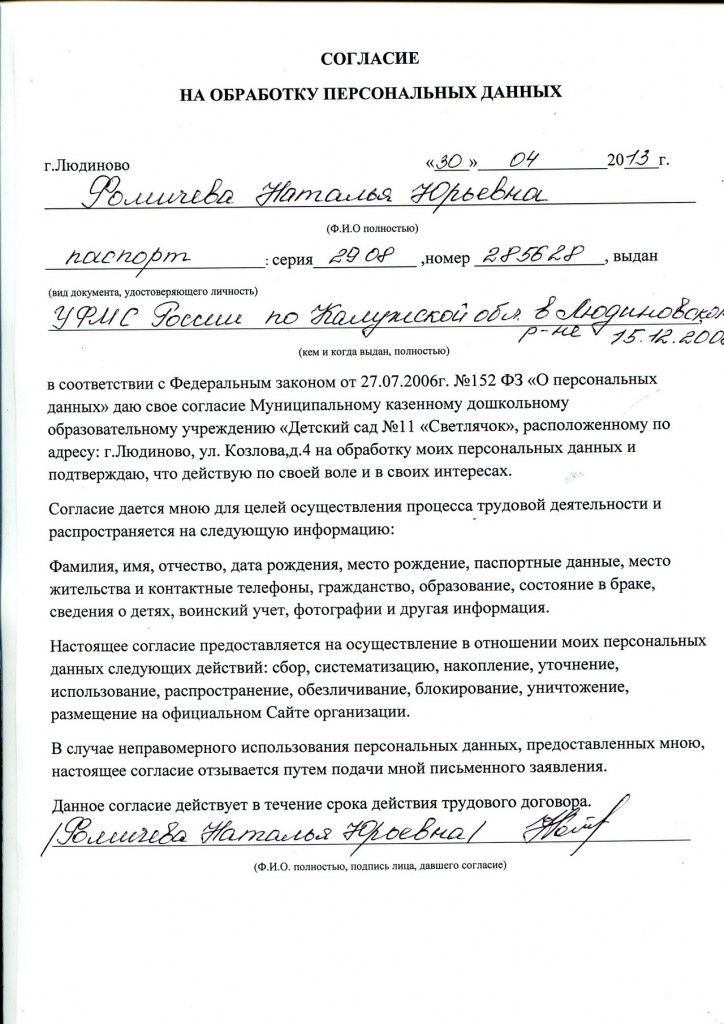 СОГЛАСИЕ
НА ОБРАБОТКУ ПЕРСОНАЛЬНЫХ ДАННЫХ
г.Людиново «30» 04 2013 г.
Фомичева Наталья Юрьевна
(Ф.И.О полностью)
паспорт : серия 2908 ,номер 285628 , выдан
(вид документа, удостоверяющего личность)
УФМС России по Калужской обл. в Людиновском
р-не 15.12.200
(кем и когда выдан, полностью)
в соответствии с Федеральным законом от 27.07.2006г. №152 ФЗ «О персональных
данных» даю свое согласие Муниципальному казенному дошкольному
образовательному учреждению «Детский сад №11 «Светлячок», расположенному по
адресу: г.Людиново, ул. Козлова,д.4 на обработку моих персональных данных и
подтверждаю, что действую по своей воле и в своих интересах.
Согласие дается мною для целей осуществления процесса трудовой деятельности и
распространяется на следующую информацию:
Фамилия, имя, отчество, дата рождения, место рождение, паспортные данные, место
жительства и контактные телефоны, гражданство, образование, состояние в браке,
сведения о детях, воинский учет, фотографии и другая информация.
Настоящее согласие предоставляется на осуществление в отношении моих персональных
данных следующих действий: сбор, систематизацию, накопление, уточнение,
использование, распространение, обезличивание, блокирование, уничтожение,
размещение на официальном Сайте организации.
В случае неправомерного использования персональных данных, предоставленных мною,
настоящее согласие отзывается путем подачи мной письменного заявления.
Данное согласие действует в течение срока действия трудового договора.
/Фомичева Наталья Юрьевна/
(Ф.И.О. полностью, подпись лица, давшего согласие)